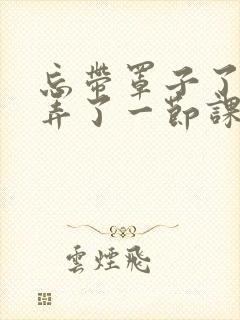 忘帶罩子了
弄了一節課
雲煙飛